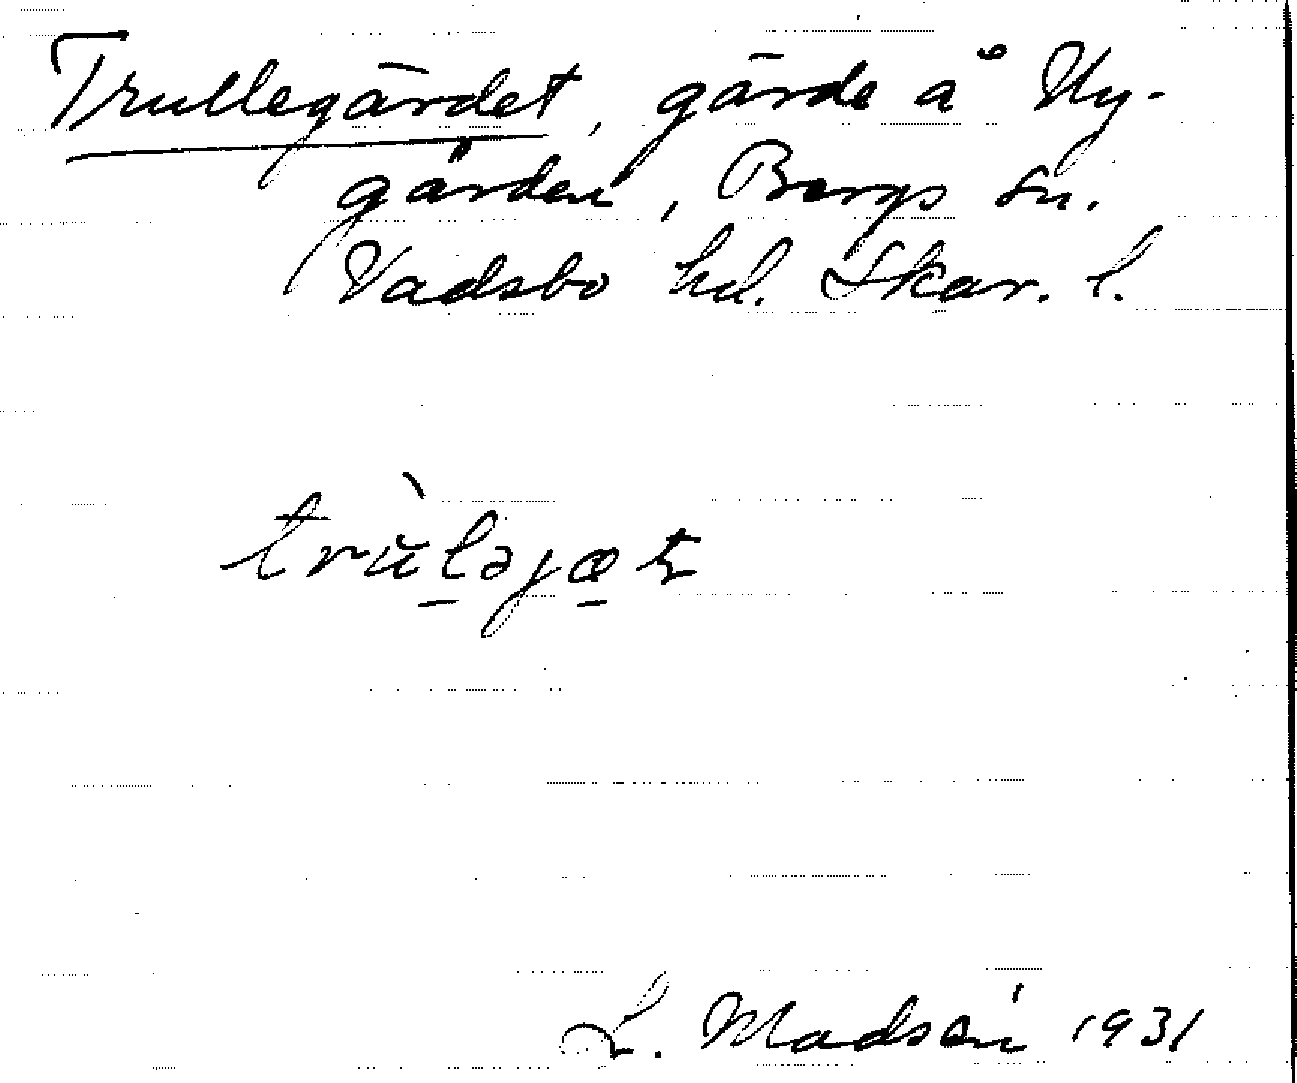 Trullegärdet, gärde å Ny-
gården, Bergs sn.
Vadsbo hd. Skar. l.
trùlǝjæt
L. Madsén 1931